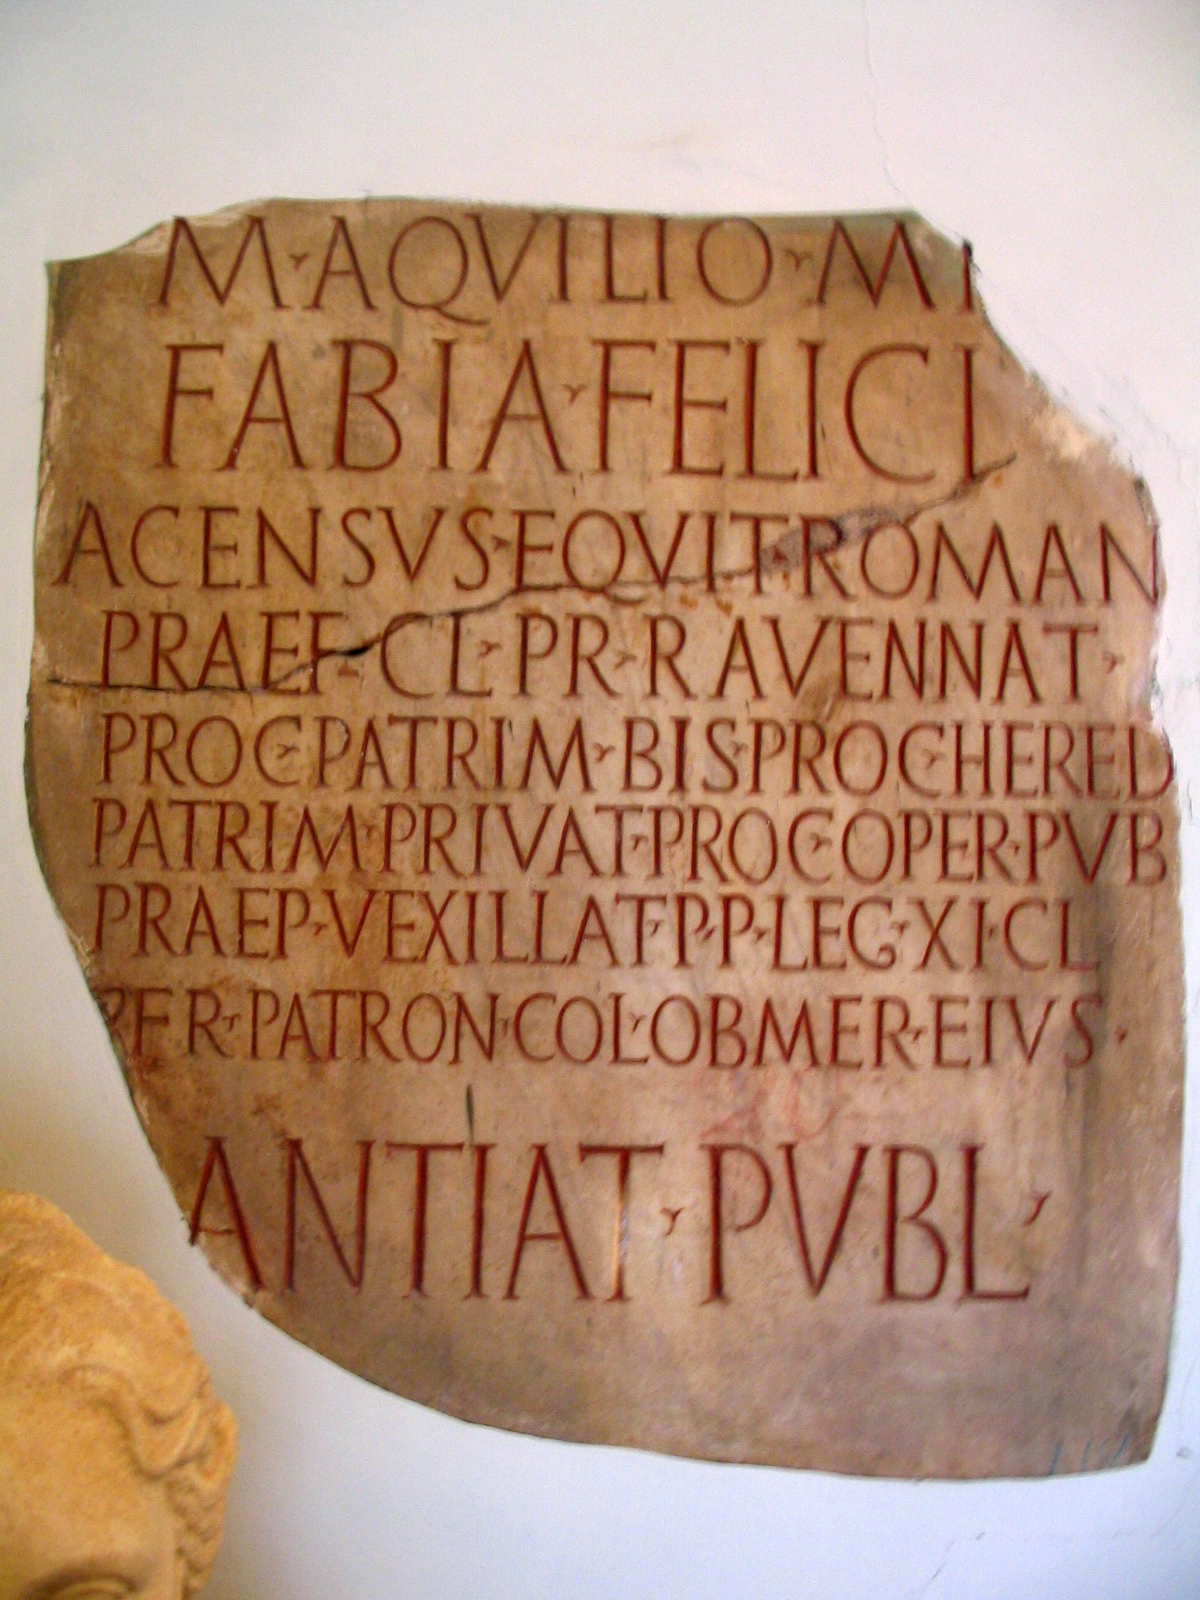 M·AQVILIO·M F
FABIA·FELICI
ACENSVS·EQVIT ROMAN
PRAEF·CL·PR·RAVENNAT·
PROC·PATRIM·BIS·PROC HERED
PATRIM·PRIVAT·PROC·OPER·PVB
PRAEP·VEXILLAT·P·P·LEG·XI·CL
PER·PATRON·COL·OB MER·EIVS·
ANTIAT·PVBL·